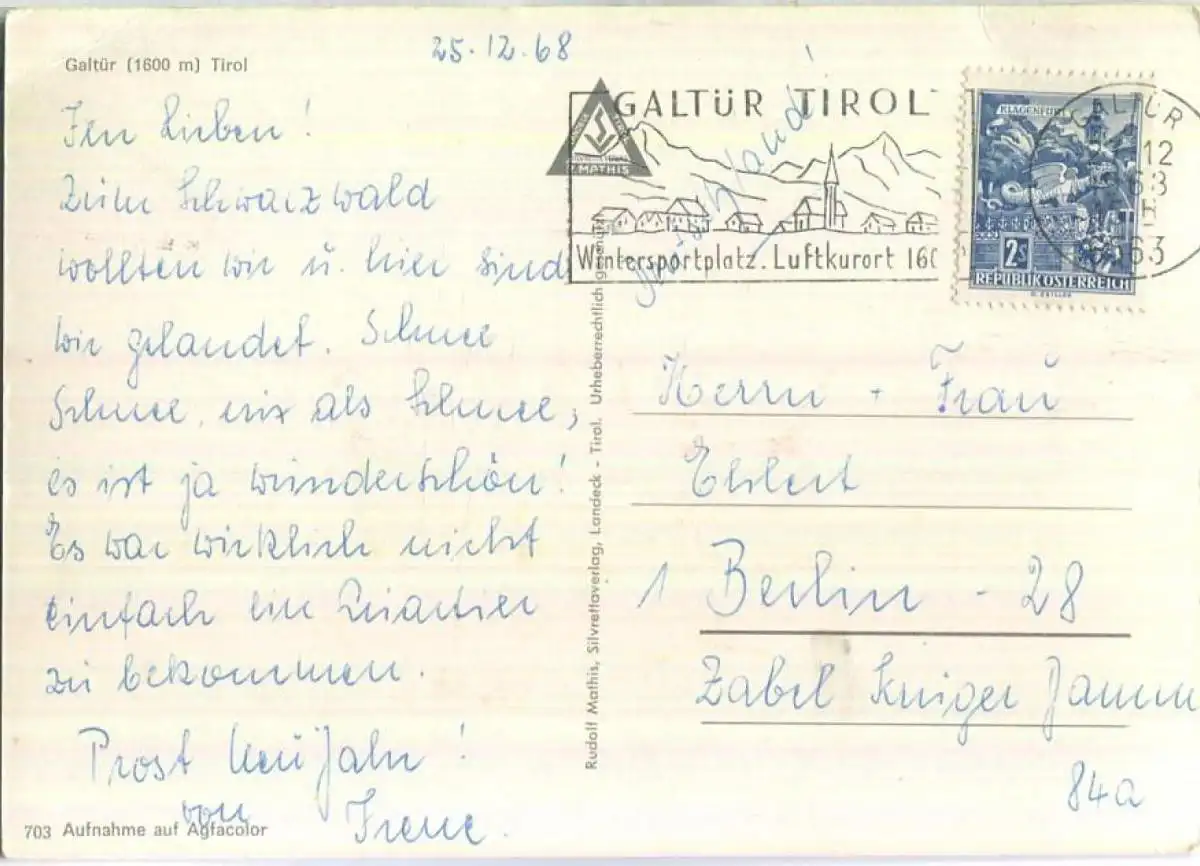 25.12.68
Galtür (1600 m) Tirol
Ihr Lieben!
Zum Schwarzwald
wollten wir u. hier sind
wir gelandet. Schnee
Schnee, nix als Schnee,
es ist ja wunderschön!
Es war wirklich nicht
einfach ein Quartier
zu bekommen.
Prost Neujahr!
von Irene.
703 Aufnahme auf Agfacolor
Rudolf Mathis, Silvrettaverlag, Landeck - Tirol. Urheberrechtlich geschützt
R. MATHIS
GALTÜR TIROL
Wintersportplatz. Luftkurort 160
Deutschland!
KLAGENFURT
2s
REPUBLIK ÖSTERREICH
GALTÜR
12
6563
Herrn + Frau
Ehlert
1 Berlin - 28
Zabel Krüger Damm
84a